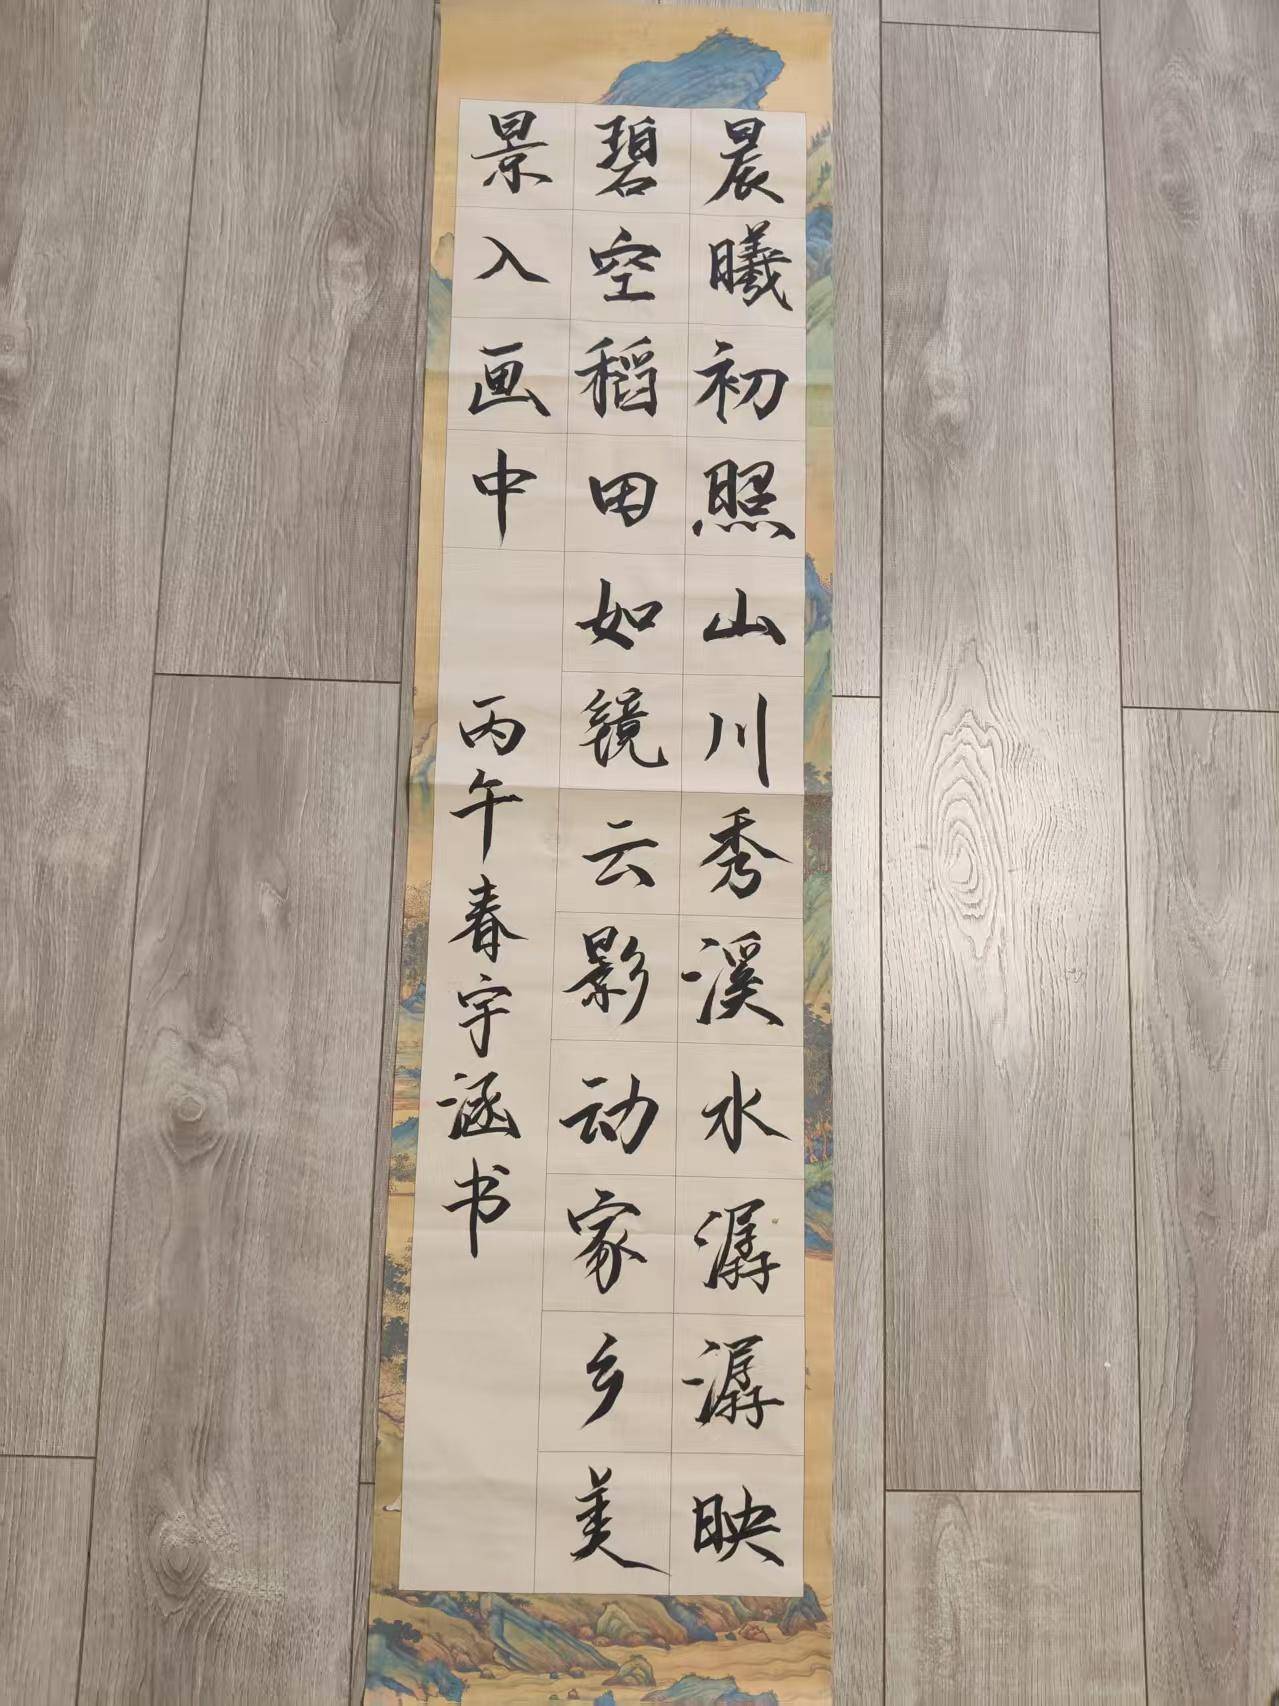 晨曦初照山川秀溪水潺潺映
碧空稻田如镜云影动家乡美
景入画中
丙午春宇涵书